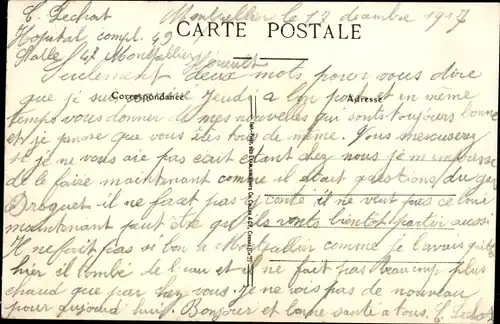 E. Lechat Montpellier le 17 decembre 1917
CARTE POSTALE
Hopital compl. 49
Salle Montpellier
Herault
Seulement deux mots pour vous dire
que je suis Jeudi a bon port et en même
Correspondance
Adresse
temps vous donner de mes nouvelles qui sont toujours bonne
et je panse que vous êtes tous de même. Vous mescuserez
si je ne vous aie pas ecrit etant chez nous je m'empresse
de le faire maintenant comme il etait questions du
Droguet il ne faret pas conté il ne veut pas ce
maintenant peut être qu'ils vonts bientot partir aussi
Il ne fait pas si bon a Montpellier comme je l'avais
hier il tombé de l'eau et il ne fait pas beaucoup plus
chaud que par chez vous. Je ne vois pas de nouveau
pour aujourd hui. Bonjour et bonne santé a tous. E. Lechat